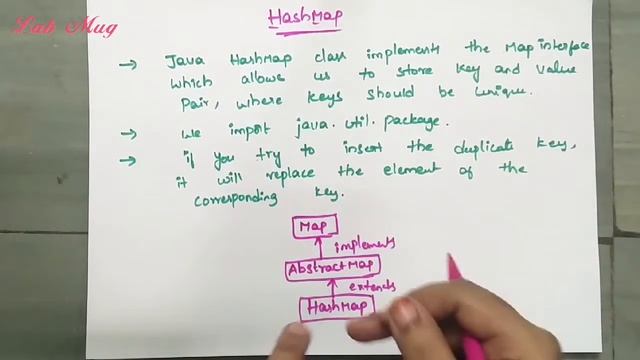 Lab Mug
HashMap
→ Java HashMap class implements the Map interface
which allows us to store key and value
pair, where keys should be unique.
→ We import java.util.package.
→ if you try to insert the duplicate key,
it will replace the element of the
corresponding key.
Map
implements
AbstractMap
extends
HashMap